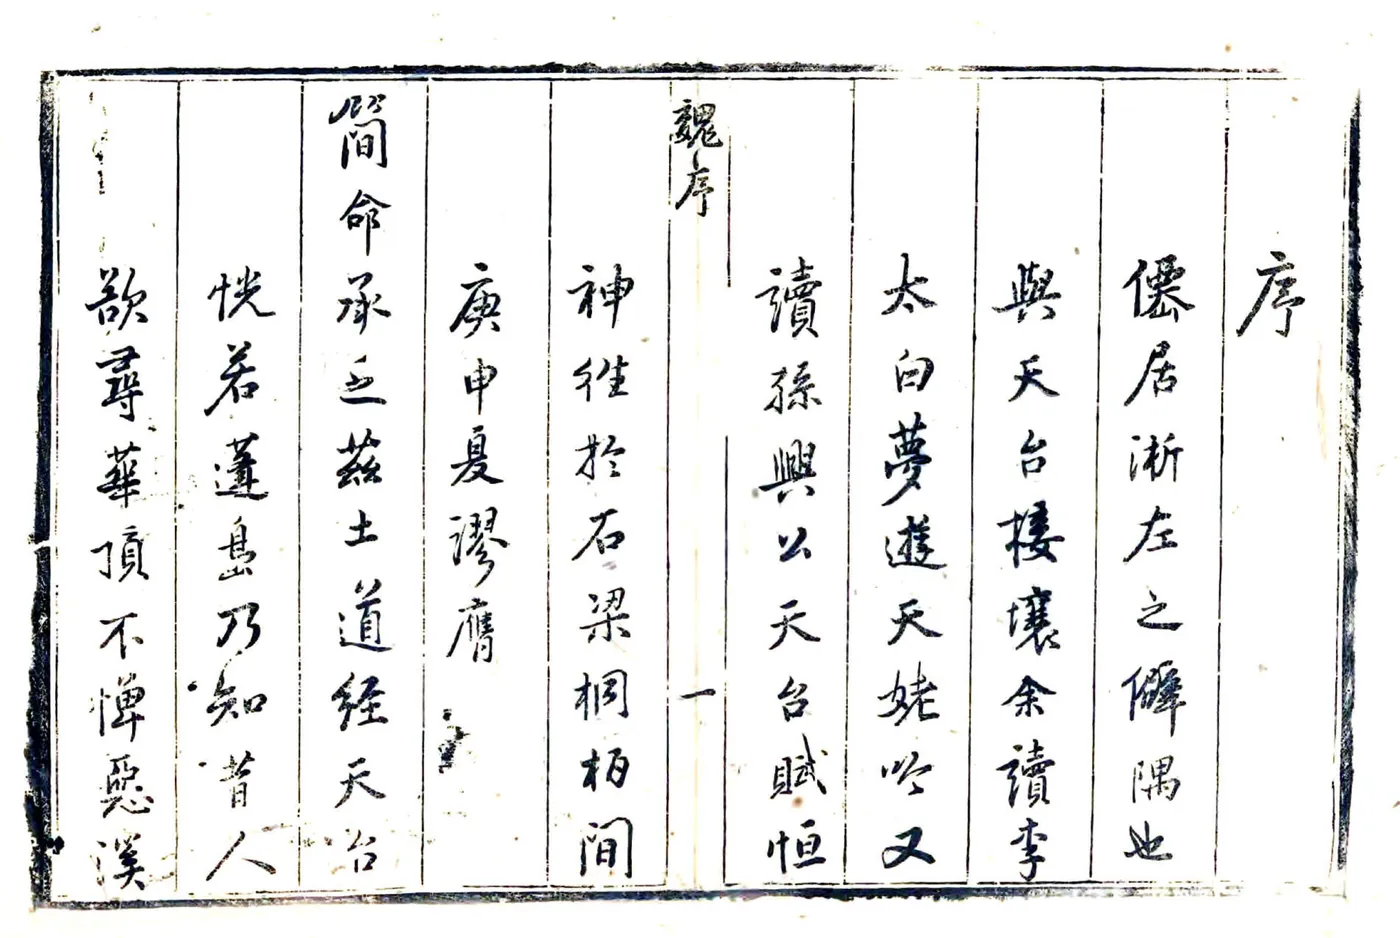 序
僊居淅左之僻隅也
與天台接壤余讀李
太白夢遊天姥吟又
讀孫興公天台賦恒
魏序
一
神徃於石梁桐柏間
庚申夏謬膺
簡命承乏茲土道経天台
恍若蓬島乃知昔人
欲尋華頂不憚惡溪